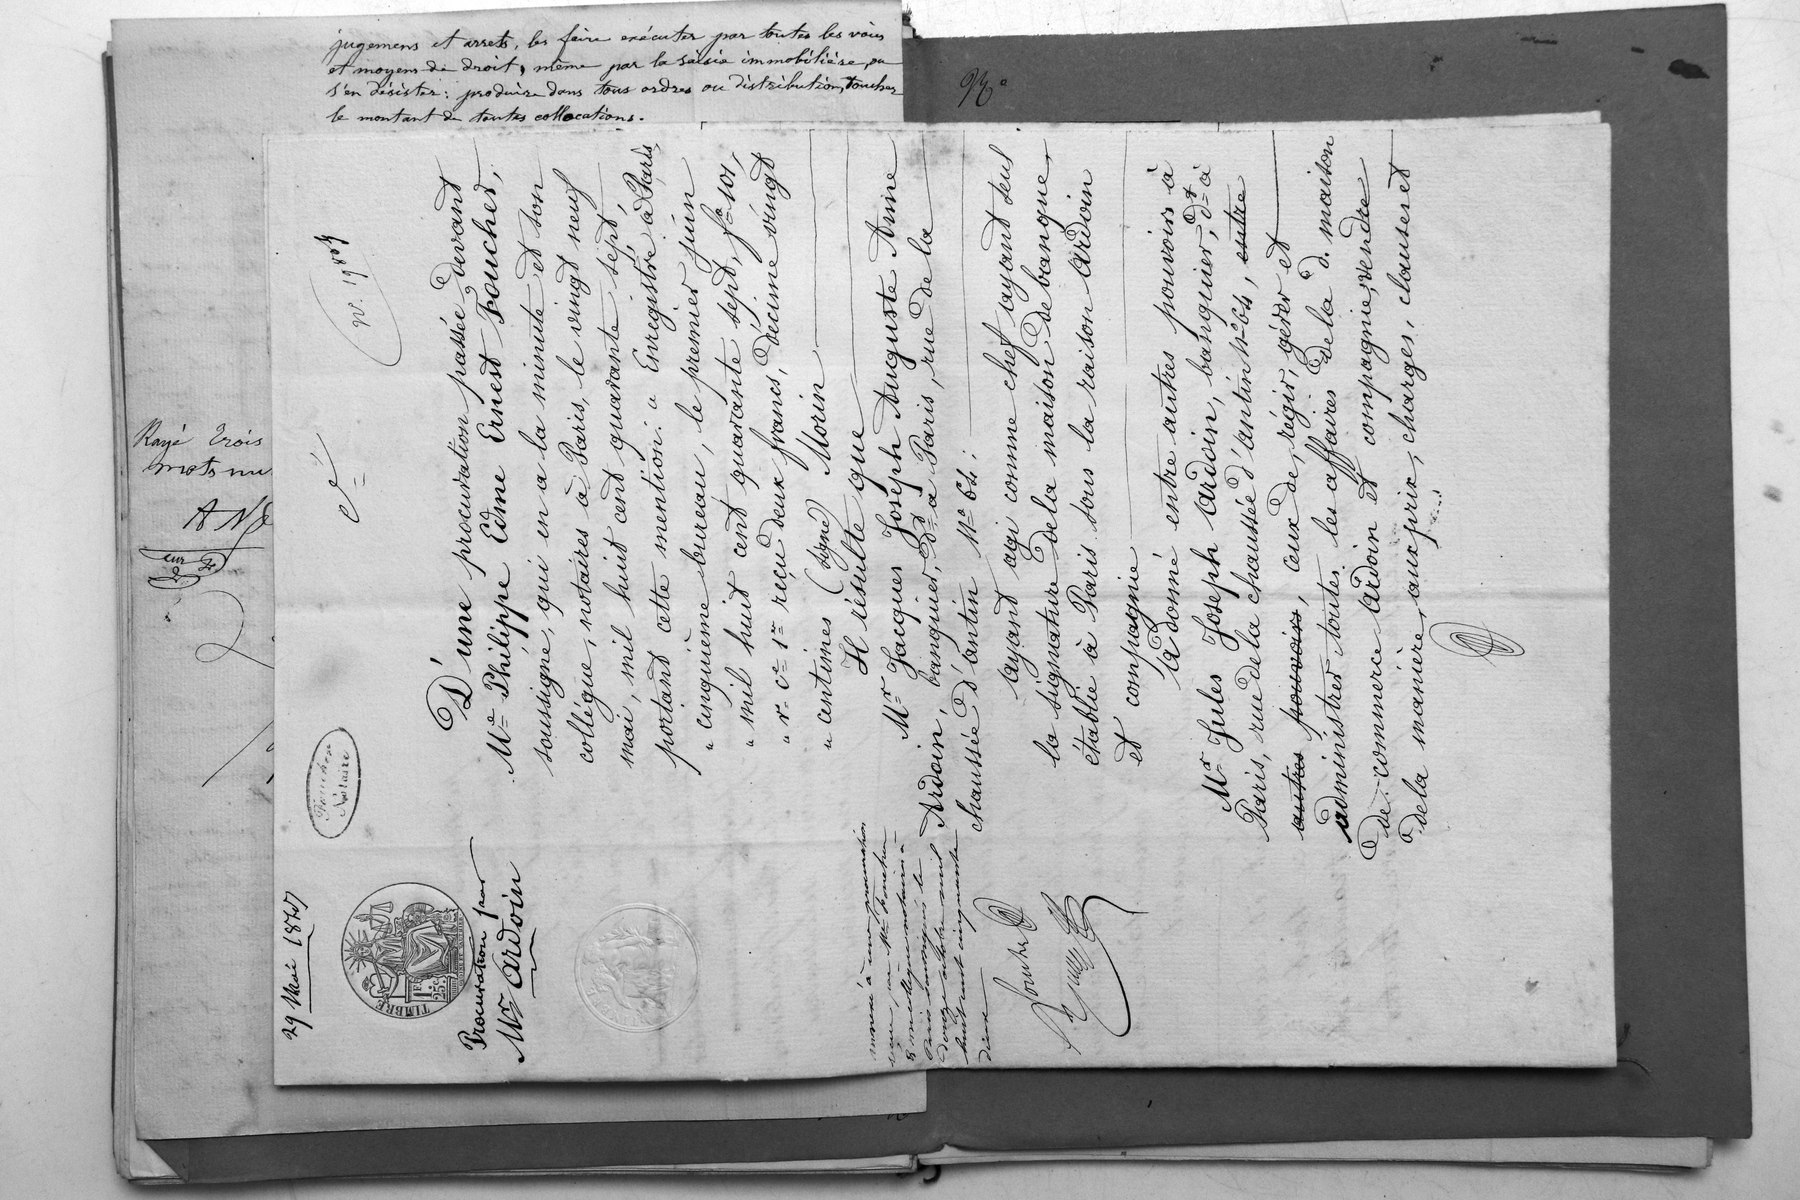 jugemens et arrets, les faire exécuter par toutes les voies
et moyens de droit, même par la saisie immobilière, ou
s'en désister: produire dans tous ordres ou distribution, toucher
le montant de toutes collocations.
Rayé trois
mots nu
29 Mai 1847
Foucher
Notaire
TIMBRE
25c
Procuration par
Mr Ardoin
D'une procuration passée devant
Me Philippe Edme Ernest Foucher,
soussigné, qui en a la minute et son
collègue, notaires à Paris, le vingt neuf
mai, mil huit cent quarante sept,
portant cette mention: « Enregistré à Paris,
« cinquième bureau, le premier juin
« mil huit cent quarante sept, fo 101,
« ro ce 1re reçu deux francs, décime vingt
« centimes (signé) Morin
Il résulte que
Mr Jacques Joseph Auguste Aime
Ardoin, banquier, dt à Paris, rue de la
chaussée d'antin No 6ts:
ayant agi comme chef ayant seul
la signature de la maison de banque,
établie à Paris sous la raison Ardoin
et compagnie
a donné entre autres pouvoirs à
Mr Jules Joseph Ardoin, banquier, dt à
Paris, rue de la chaussée d'antin No 6ts, entre
autres pouvoirs, ceux de, régir, gérer et
administrer toutes les affaires de la d. maison
de commerce Ardoin et compagnie, vendre
de la manière, aux prix, charges, clauses et
annexé à une procuration
Me Foucher
Paris
douze octobre mil
huit cent cinquante
Foucher